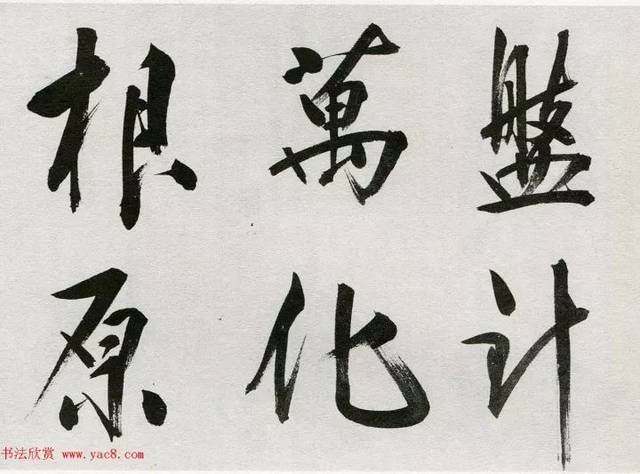 盤計
萬化
根原
书法欣赏 www.yac8.com